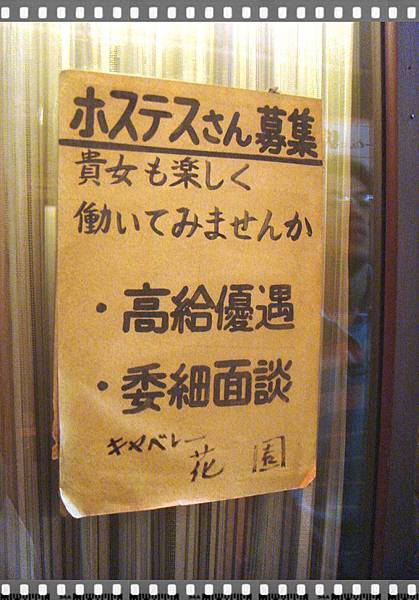 ホステスさん募集
貴女も楽しく
働いてみませんか
・高給優遇
・委細面談
キャバレー
花園